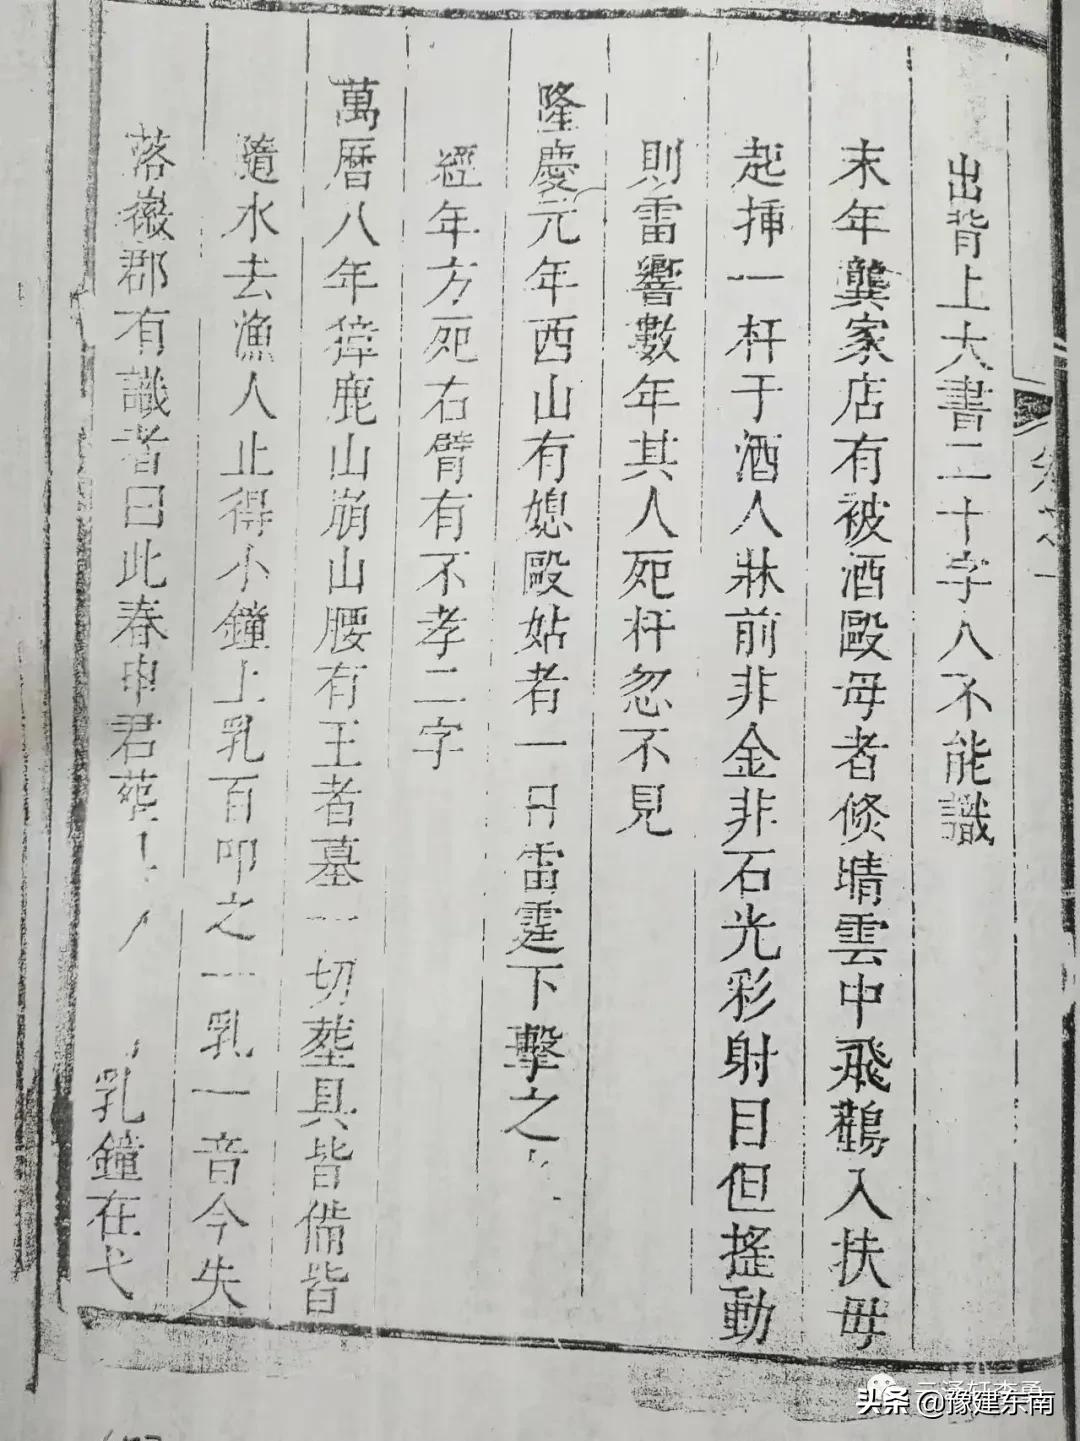 出背上大書二十字人不能識
末年龔家店有被酒毆母者倐晴雲中飛鸛入扶母
起揷一杆于酒人牀前非金非石光彩射目但搖動
則雷響數年其人死杆忽不見
隆慶元年西山有媳毆姑者一日雷霆下擊之
經年方死右臂有不孝二字
萬曆八年獐鹿山崩山腰有王者墓一切塟具皆備皆
隨水去漁人止得小鐘上乳百叩之一乳一音今失
落嶶郡有識者曰此春申君塟
乳鐘在弋
头条 @豫建东南